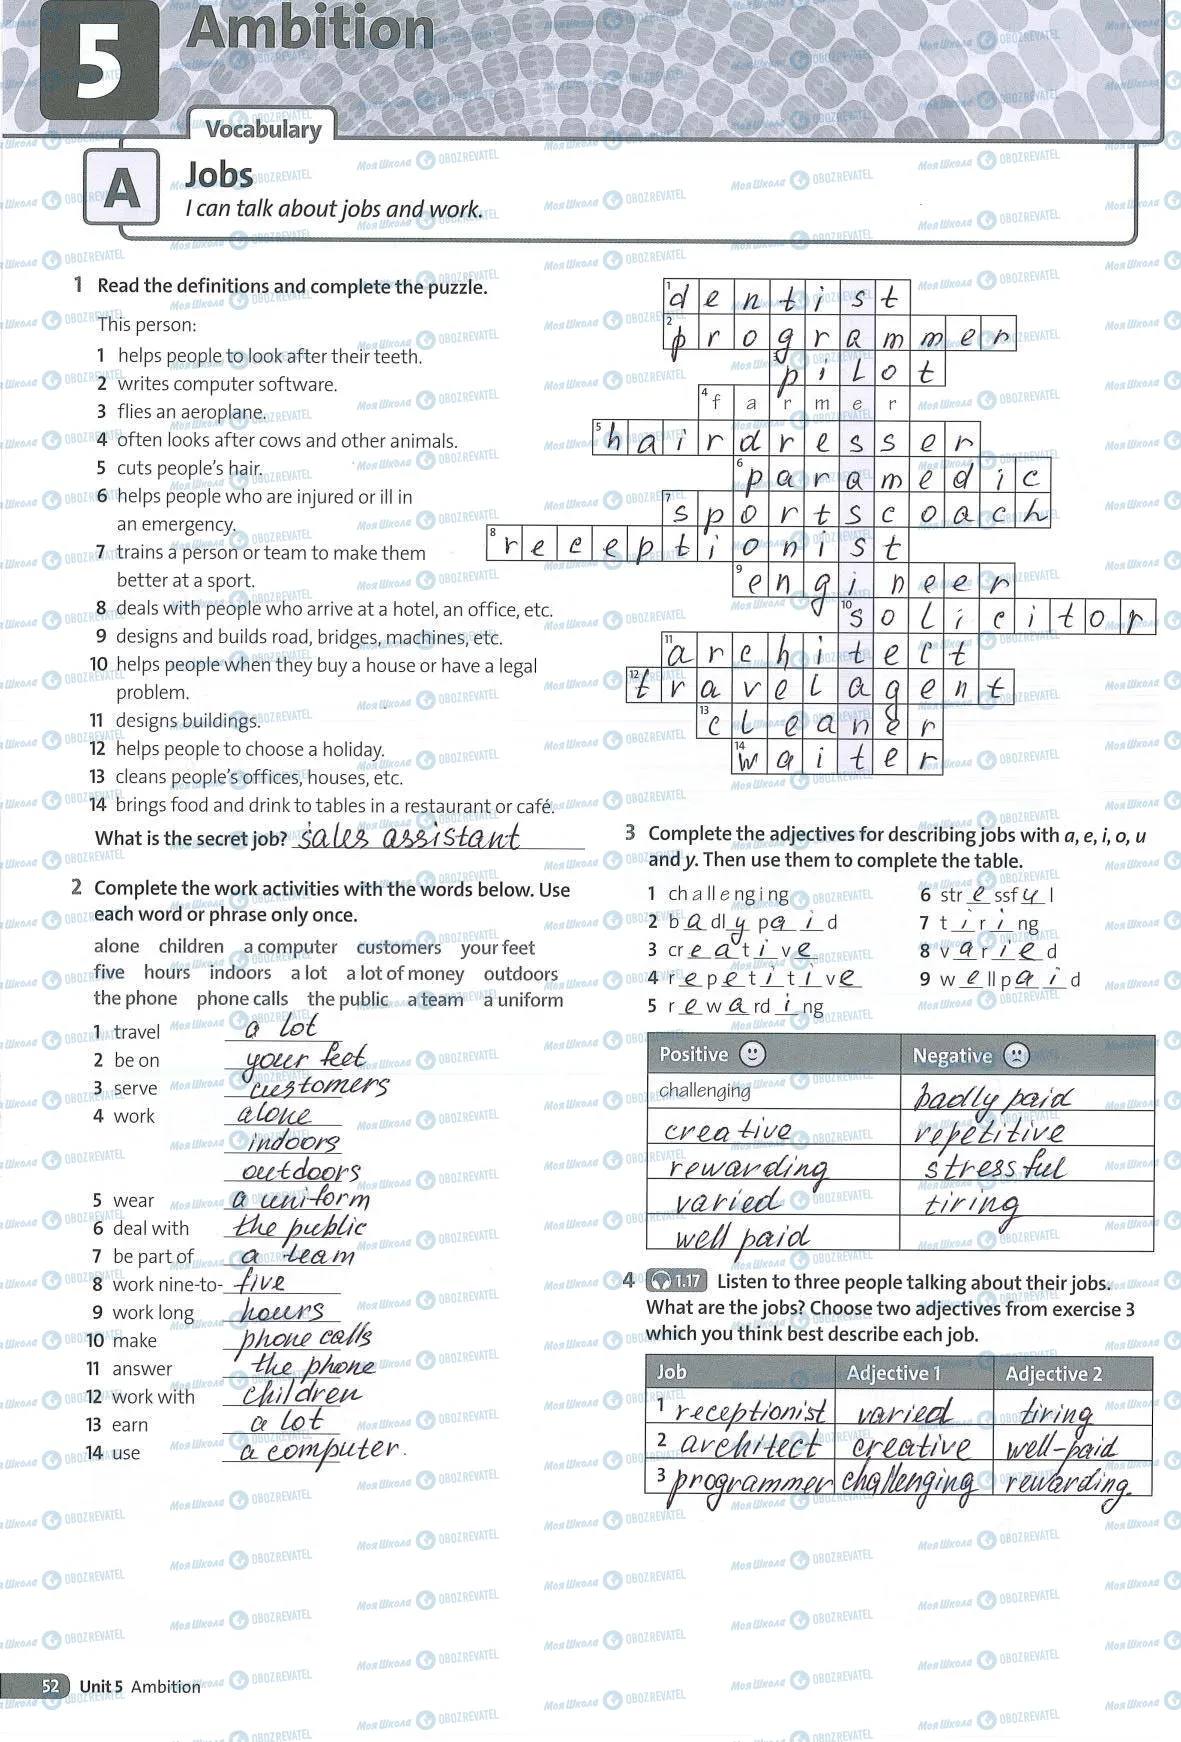 5
Ambition
Vocabulary
A
Jobs
I can talk about jobs and work.
1 Read the definitions and complete the puzzle.
This person:
1 helps people to look after their teeth.
2 writes computer software.
3 flies an aeroplane.
4 often looks after cows and other animals.
5 cuts people's hair.
6 helps people who are injured or ill in
an emergency.
7 trains a person or team to make them
better at a sport.
8 deals with people who arrive at a hotel, an office, etc.
9 designs and builds road, bridges, machines, etc.
10 helps people when they buy a house or have a legal
problem.
11 designs buildings.
12 helps people to choose a holiday.
13 cleans people's offices, houses, etc.
14 brings food and drink to tables in a restaurant or café.
What is the secret job? sales assistant
1 dentist
2 programmer
3 pilot
4 farmer
5 hairdresser
6 paramedic
7 sportscoach
8 receptionist
9 engineer
10 solicitor
11 architect
12 travelagent
13 cleaner
14 waiter
2 Complete the work activities with the words below. Use
each word or phrase only once.
alone children a computer customers your feet
five hours indoors a lot a lot of money outdoors
the phone phone calls the public a team a uniform
1 travel a lot
2 be on your feet
3 serve customers
4 work alone
indoors
outdoors
5 wear a uniform
6 deal with the public
7 be part of a team
8 work nine-to- five
9 work long hours
10 make phone calls
11 answer the phone
12 work with children
13 earn a lot
14 use a computer.
3 Complete the adjectives for describing jobs with a, e, i, o, u
and y. Then use them to complete the table.
1 challenging
2 badly paid
3 creative
4 repetitive
5 rewarding
6 stressfyl
7 tiring
8 varied
9 well paid
Positive Negative
challenging badly paid
creative repetitive
rewarding stressful
varied tiring
well paid
4 1.17 Listen to three people talking about their jobs.
What are the jobs? Choose two adjectives from exercise 3
which you think best describe each job.
Job Adjective 1 Adjective 2
1 receptionist varied tiring
2 architect creative well-paid
3 programmer challenging rewarding.
52 Unit 5 Ambition
Моя Школа OBOZREVATEL